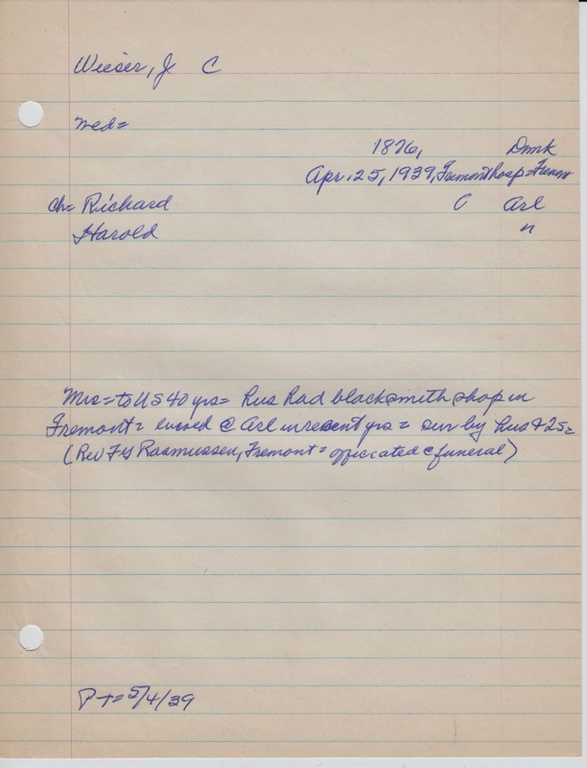 Wieser, J C
med=
1876, Dmk
Apr. 25, 1939, Fremont hosp = Fremont
ch= Richard C Arl
Harold "
Mrs = to US 40 yrs = hus had blacksmith shop in
Fremont = lived @ Arl in recent yrs = sur by hus + 2s =
(Rev F S Rasmussen, Fremont = officiated @ funeral)
P T = 5/4/39